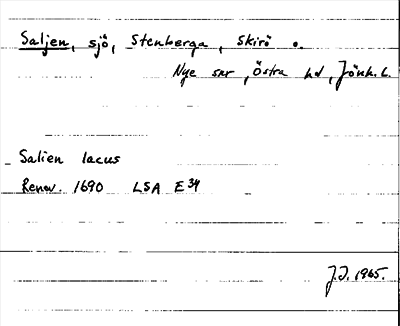 Saljen, sjö, Stenberga, Skirö o.
Nye snr, Östra hd, Jönk. L.
Salien lacus
Renov. 1690 LSA E 34
J.I. 1965.